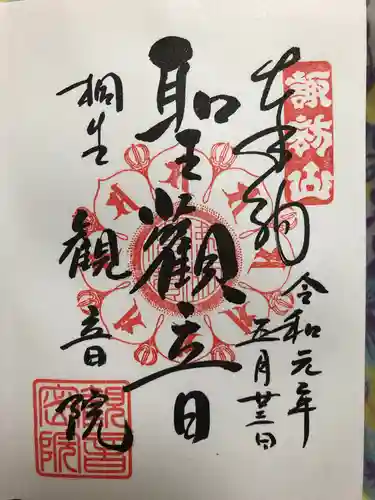 諏訪山
奉拝
令和元年
五月廿三日
聖観音
桐生
観音院